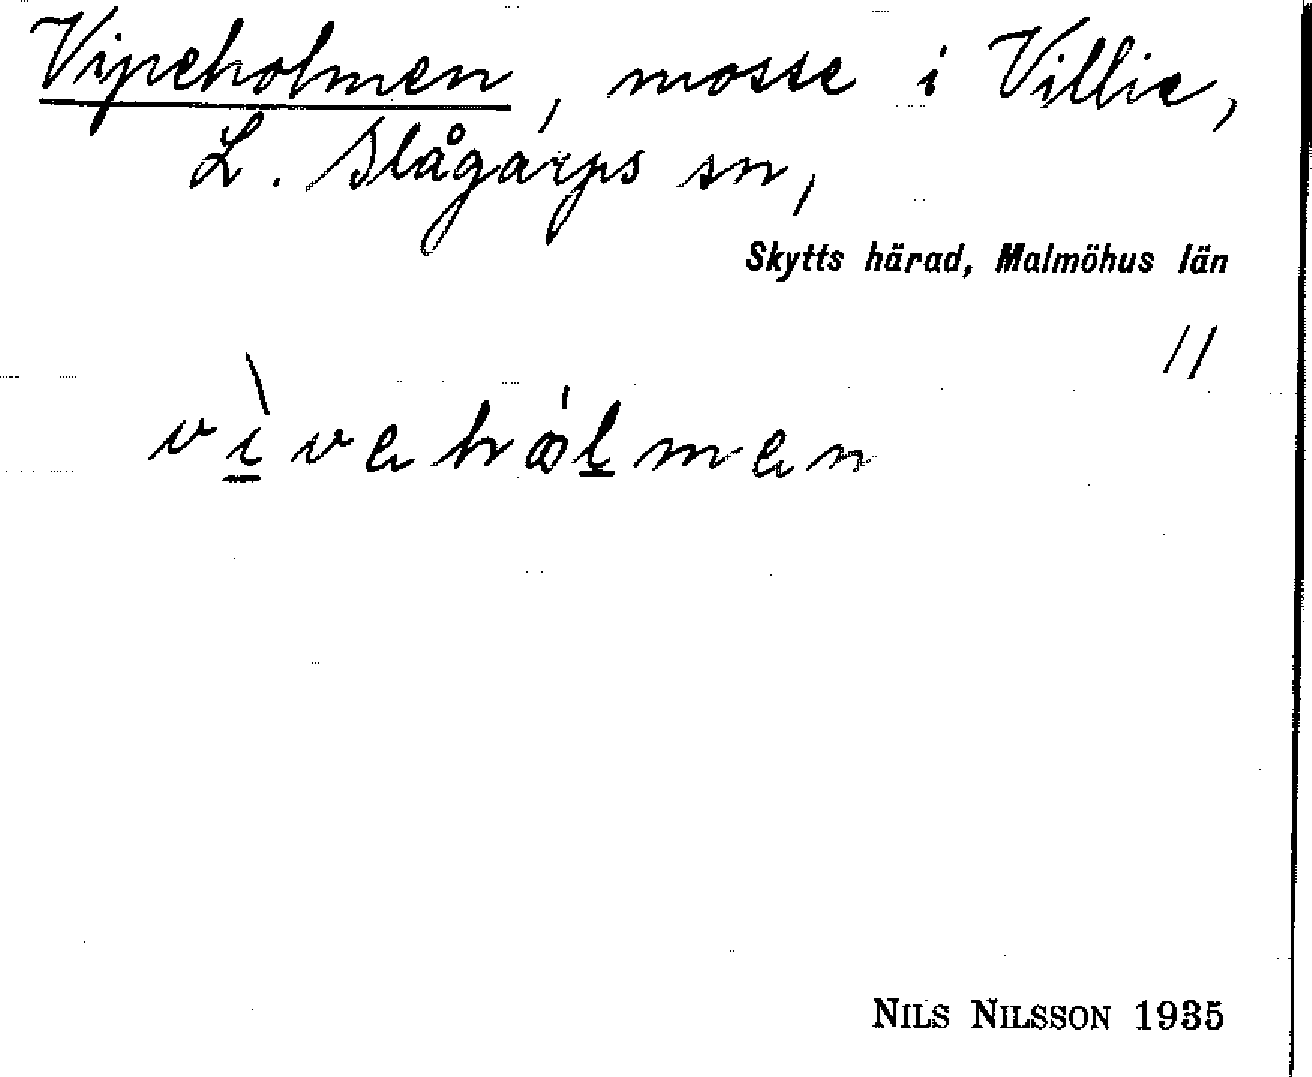 Vipeholmen, mosse i Villie,
L. Slågarps sn,
Skytts härad, Malmöhus län
//
vìvehålmen
NILS NILSSON 1935